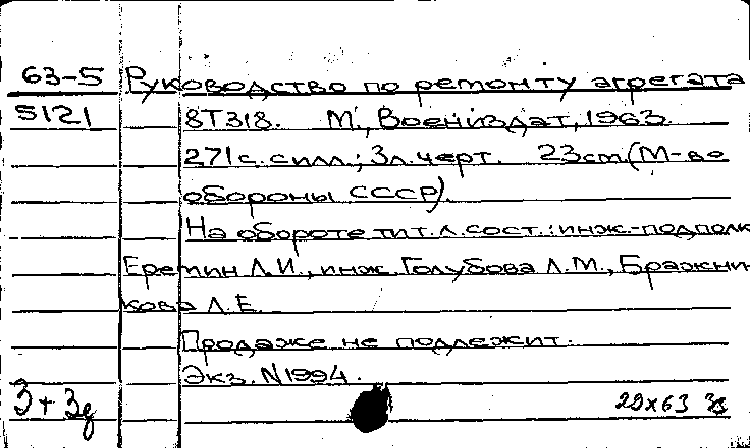 63-5 Руководство по ремонту агрегата
5121 8Т318. М., Воениздат, 1963.
271 с. силл.; 3л. черт. 23см (М-во
обороны СССР).
На обороте тит. л. сост.: инж.-подполк
Еремин Л.И., инж. Голубова Л.М., Бражни
кова Л.Е.
Продаже не подлежит.
Экз. N1994.
3+3д